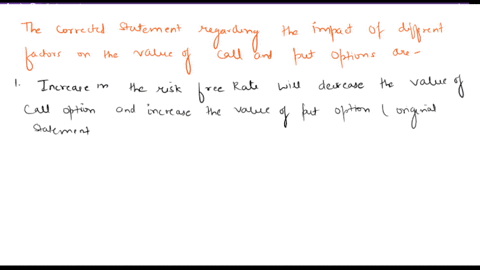 The corrected statement regarding the impact of different
factors on the value of call and put options are-
1. Increase in the risk free Rate will decrease the value of
Call option and increase the value of put option ( original
statement